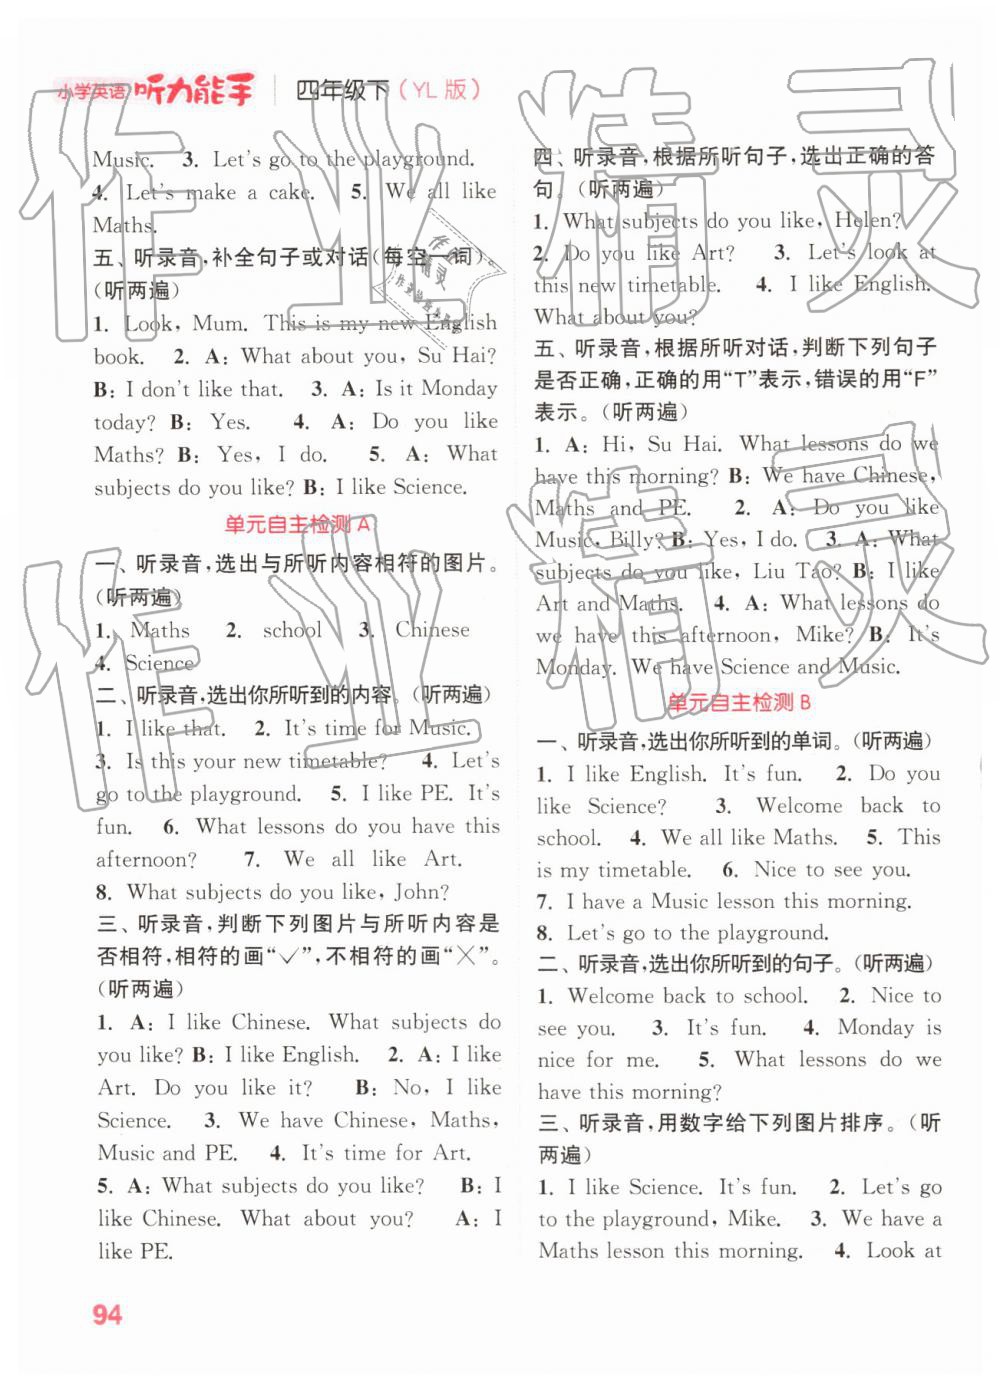 小学英语 听力能手 四年级下（YL版）
Music. 3. Let's go to the playground.
4. Let's make a cake. 5. We all like
Maths.
五、听录音，补全句子或对话（每空一词）。
（听两遍）
1. Look, Mum. This is my new English
book. 2. A: What about you, Su Hai?
B: I don't like that. 3. A: Is it Monday
today? B: Yes. 4. A: Do you like
Maths? B: Yes, I do. 5. A: What
subjects do you like? B: I like Science.
单元自主检测 A
一、听录音，选出与所听内容相符的图片。
（听两遍）
1. Maths 2. school 3. Chinese
4. Science
二、听录音，选出你所听到的内容。（听两遍）
1. I like that. 2. It's time for Music.
3. Is this your new timetable? 4. Let's
go to the playground. 5. I like PE. It's
fun. 6. What lessons do you have this
afternoon? 7. We all like Art.
8. What subjects do you like, John?
三、听录音，判断下列图片与所听内容是
否相符，相符的画“✓”，不相符的画“×”。
（听两遍）
1. A: I like Chinese. What subjects do
you like? B: I like English. 2. A: I like
Art. Do you like it? B: No, I like
Science. 3. We have Chinese, Maths,
Music and PE. 4. It's time for Art.
5. A: What subjects do you like? B: I
like Chinese. What about you? A: I
like PE.
四、听录音，根据所听句子，选出正确的答
句。（听两遍）
1. What subjects do you like, Helen?
2. Do you like Art? 3. Let's look at
this new timetable. 4. I like English.
What about you?
五、听录音，根据所听对话，判断下列句子
是否正确，正确的用“T”表示，错误的用“F”
表示。（听两遍）
1. A: Hi, Su Hai. What lessons do we
have this morning? B: We have Chinese,
Maths and PE. 2. A: Do you like
Music, Billy? B: Yes, I do. 3. A: What
subjects do you like, Liu Tao? B: I like
Art and Maths. 4. A: What lessons do
we have this afternoon, Mike? B: It's
Monday. We have Science and Music.
单元自主检测 B
一、听录音，选出你所听到的单词。（听两遍）
1. I like English. It's fun. 2. Do you
like Science? 3. Welcome back to
school. 4. We all like Maths. 5. This
is my timetable. 6. Nice to see you.
7. I have a Music lesson this morning.
8. Let's go to the playground.
二、听录音，选出你所听到的句子。（听两遍）
1. Welcome back to school. 2. Nice to
see you. 3. It's fun. 4. Monday is
nice for me. 5. What lessons do we
have this morning?
三、听录音，用数字给下列图片排序。（听
两遍）
1. I like Science. It's fun. 2. Let's go
to the playground, Mike. 3. We have a
Maths lesson this morning. 4. Look at
94
作业精灵
作业精灵